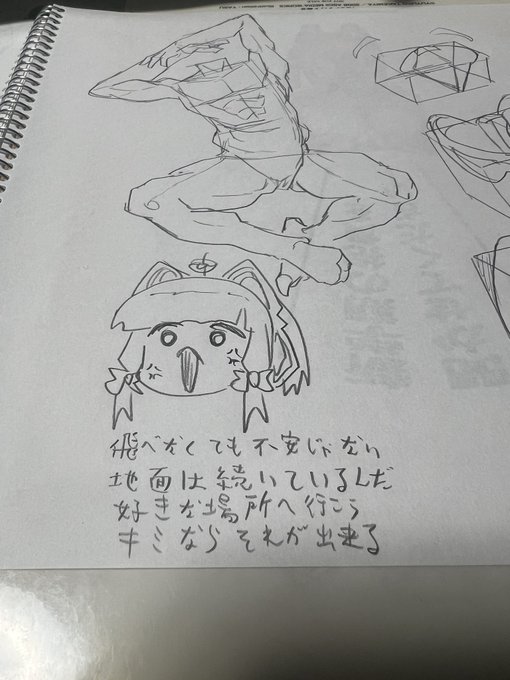 飛べなくても不安じゃない
地面は続いているんだ
好きな場所へ行こう
キミならそれが出来る